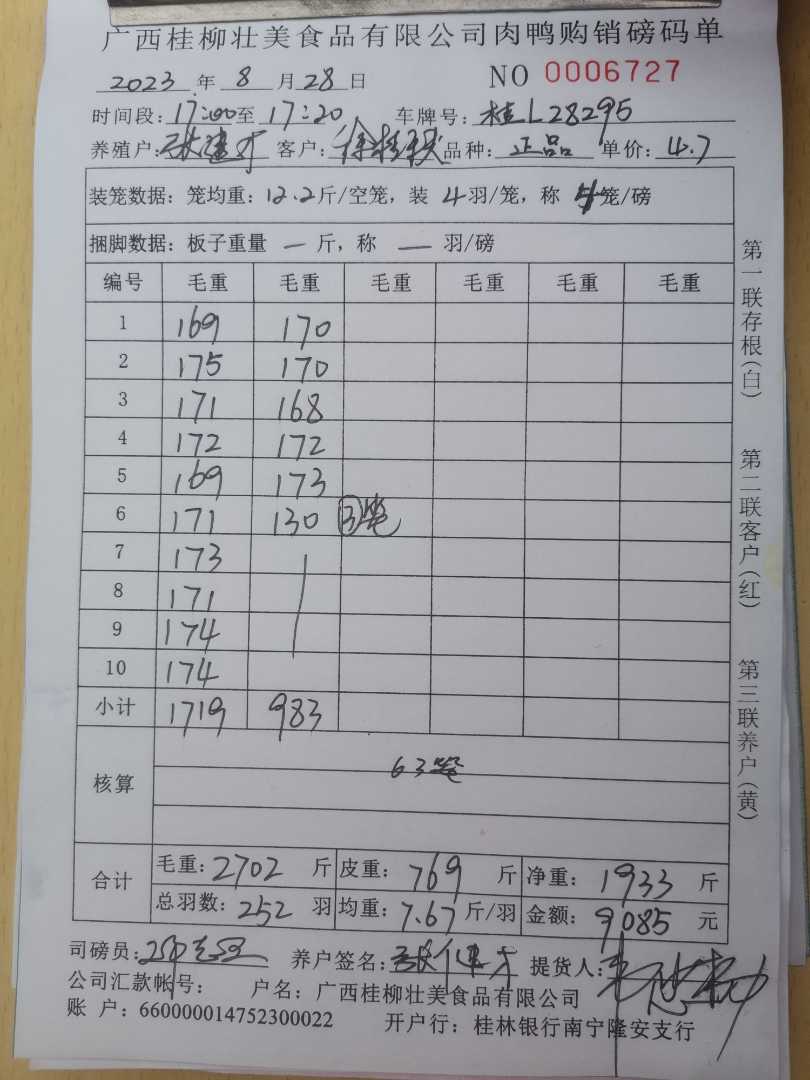 广西桂柳壮美食品有限公司肉鸭购销磅码单
2023 年 8 月 28 日 NO 0006727
时间段：17:00至 17:20 车牌号：桂L28295
养殖户： 客户： 品种：正品 单价：4.7
装笼数据：笼均重：12.2斤/空笼，装 4羽/笼，称 4笼/磅
捆脚数据：板子重量 — 斤，称 — 羽/磅
编号 毛重 毛重 毛重 毛重 毛重 毛重
1 169 170
2 175 170
3 171 168
4 172 172
5 169 173
6 171 130 ③笼
7 173
8 171
9 174
10 174
小计 1719 983
核算 63笼
合计 毛重：2702 斤 皮重：769 斤 净重：1933 斤
总羽数：252 羽 均重：7.67 斤/羽 金额：9085 元
司磅员： 养户签名： 提货人：
公司汇款帐号： 户名：广西桂柳壮美食品有限公司
账 户：660000014752300022 开户行：桂林银行南宁隆安支行
第一联存根(白)
第二联客户(红)
第三联养户(黄)